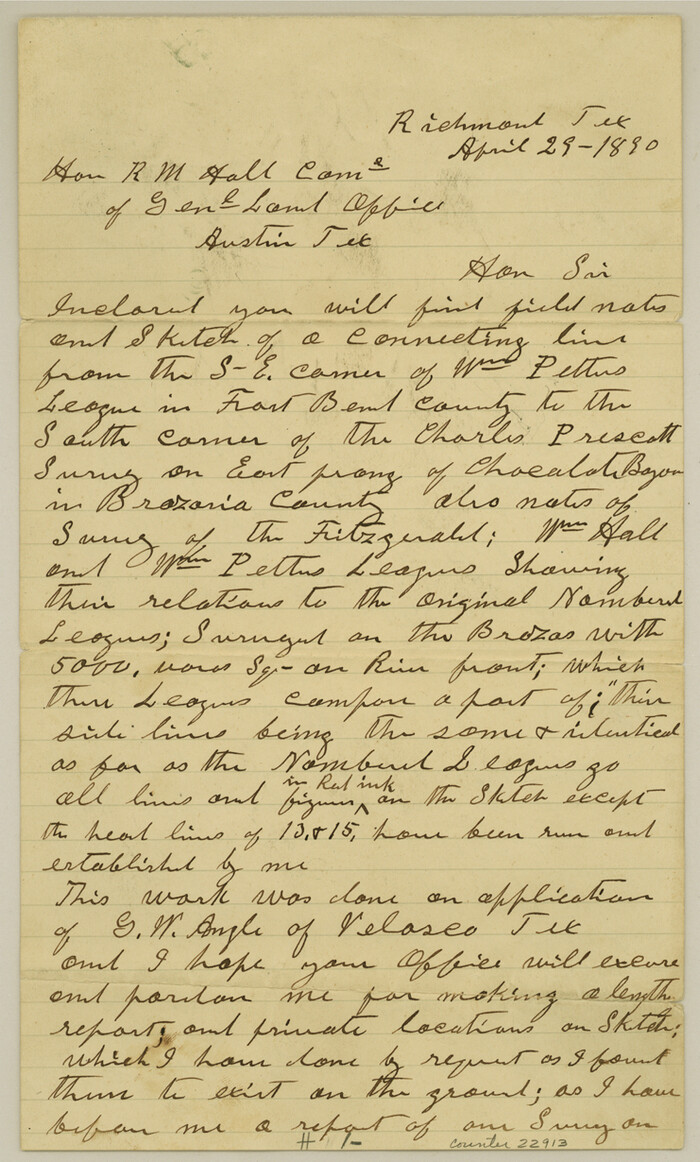 Richmond Tex
April 29-1890
Hon R M Hall Comr
of Genl Land Office
Austin Tex
Hon Sir
Inclosed you will find field notes
and Sketch of a Connecting line
from the S-E. corner of Wm Pettus
League in Fort Bend county to the
South corner of the Charles Prescott
Survey on East prong of Chocalate Bayou
in Brazoria County also notes of
Survey of the Fitzgerald; Wm Hall
and Wm Pettus Leagues Showing
their relations to the original Nombered
Leagues; Surveyed on the Brazos with
5000, varas Sqr on River front; which
these Leagues compose a part of; "their
side lines being the same & identical
as far as the Nombered Leagues go
all lines and figures in Red ink on the Sketch except
the head lines of 13.&15, have been run and
established by me
This work was done on application
of G. W. Angle of Velasco Tex
and I hope your Office will excuse
and pardon me for making a lengthy
report; and private locations on Sketch;
which I have done by request as I found
them to exist on the ground; as I have
before me a report of one Survey on
# 1-
counter 22913